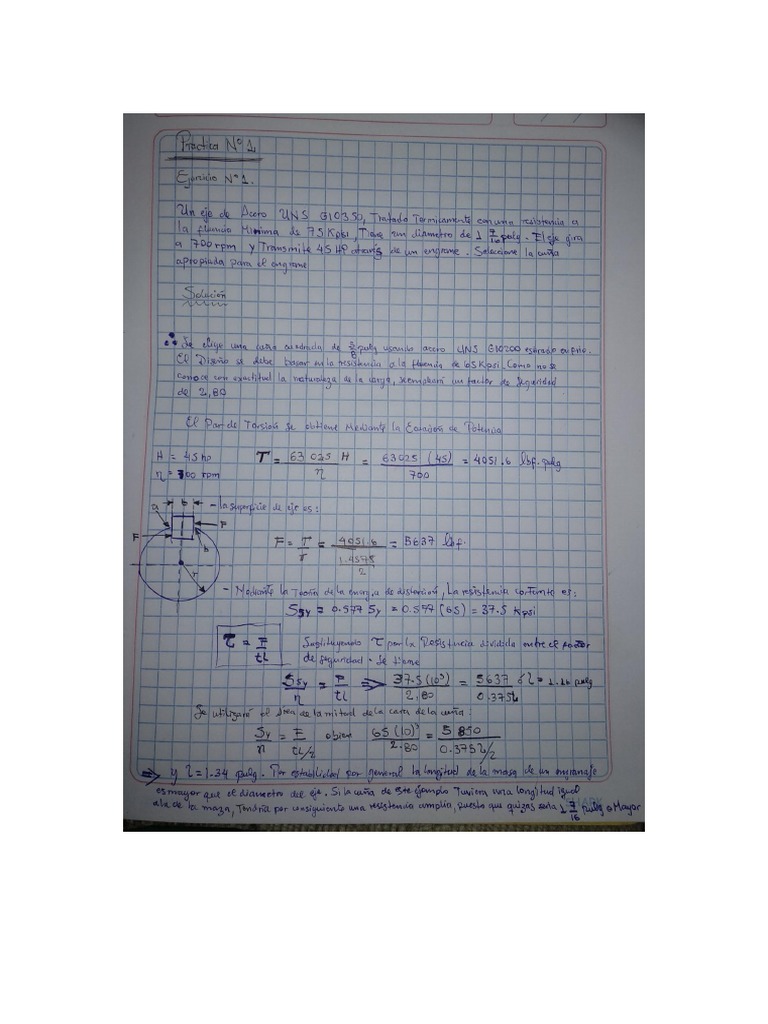 Práctica N°1.
Ejercicio N°1.
Un eje de Acero UNS G10350, Tratado Termicamente con una resistencia a
la fluencia Minima de 75 Kpsi, Tiene un diametro de 1 7/16 pulg. El eje gira
a 700 rpm y Transmite 45 HP através de un engrane. Seleccione la cuña
apropiada para el engrane
Solución
∴ Se elige una cuña cuadrada de 3/8 pulg usando acero UNS G10200 estirado en frio.
El Diseño se debe basar en la resistencia a la fluencia de 65 Kpsi. Como no se
conoce con exactitud la naturaleza de la carga, se empleará un factor de seguridad
de 2,80
El Par de Torsión se obtiene Mediante la Ecuación de Potencia
H = 45 hp T = 63 025 H / n = 63025 (45) / 700 = 4051.6 lbf. pulg
n = 700 rpm
- la superficie de eje es:
a b F
F = T/r = 4051.6 / 1.4375/2 = 5637 lbf.
F b
r
- Mediante la Teoría de la energia de distorción, La resistencia cortante es:
Ssy = 0.577 Sy = 0.577 (65) = 37.5 Kpsi
τ = F/tl Sustituyendo τ por la Resistencia dividida entre el factor
de seguridad. Se tiene
Ssy/n = F/tl ⇒ 37.5 (10³) / 2,80 = 5637 / 0.375l
Se utilizará el área de la mitad de la cara de la cuña:
Sy/n = F / tl/2 o bien 65 (10)³ / 2.80 = 5 850 / 0.375l/2
⇒ y l = 1.34 pulg. Por estabilidad por general la longitud de la masa de un engranaje
es mayor que el diametro del eje. Si la cuña de este ejemplo Tuviera una longitud igual
a la de la maza, Tendría por consiguiente una resistencia amplio, puesto que quizás sería 1 7/16 pulg o Mayor